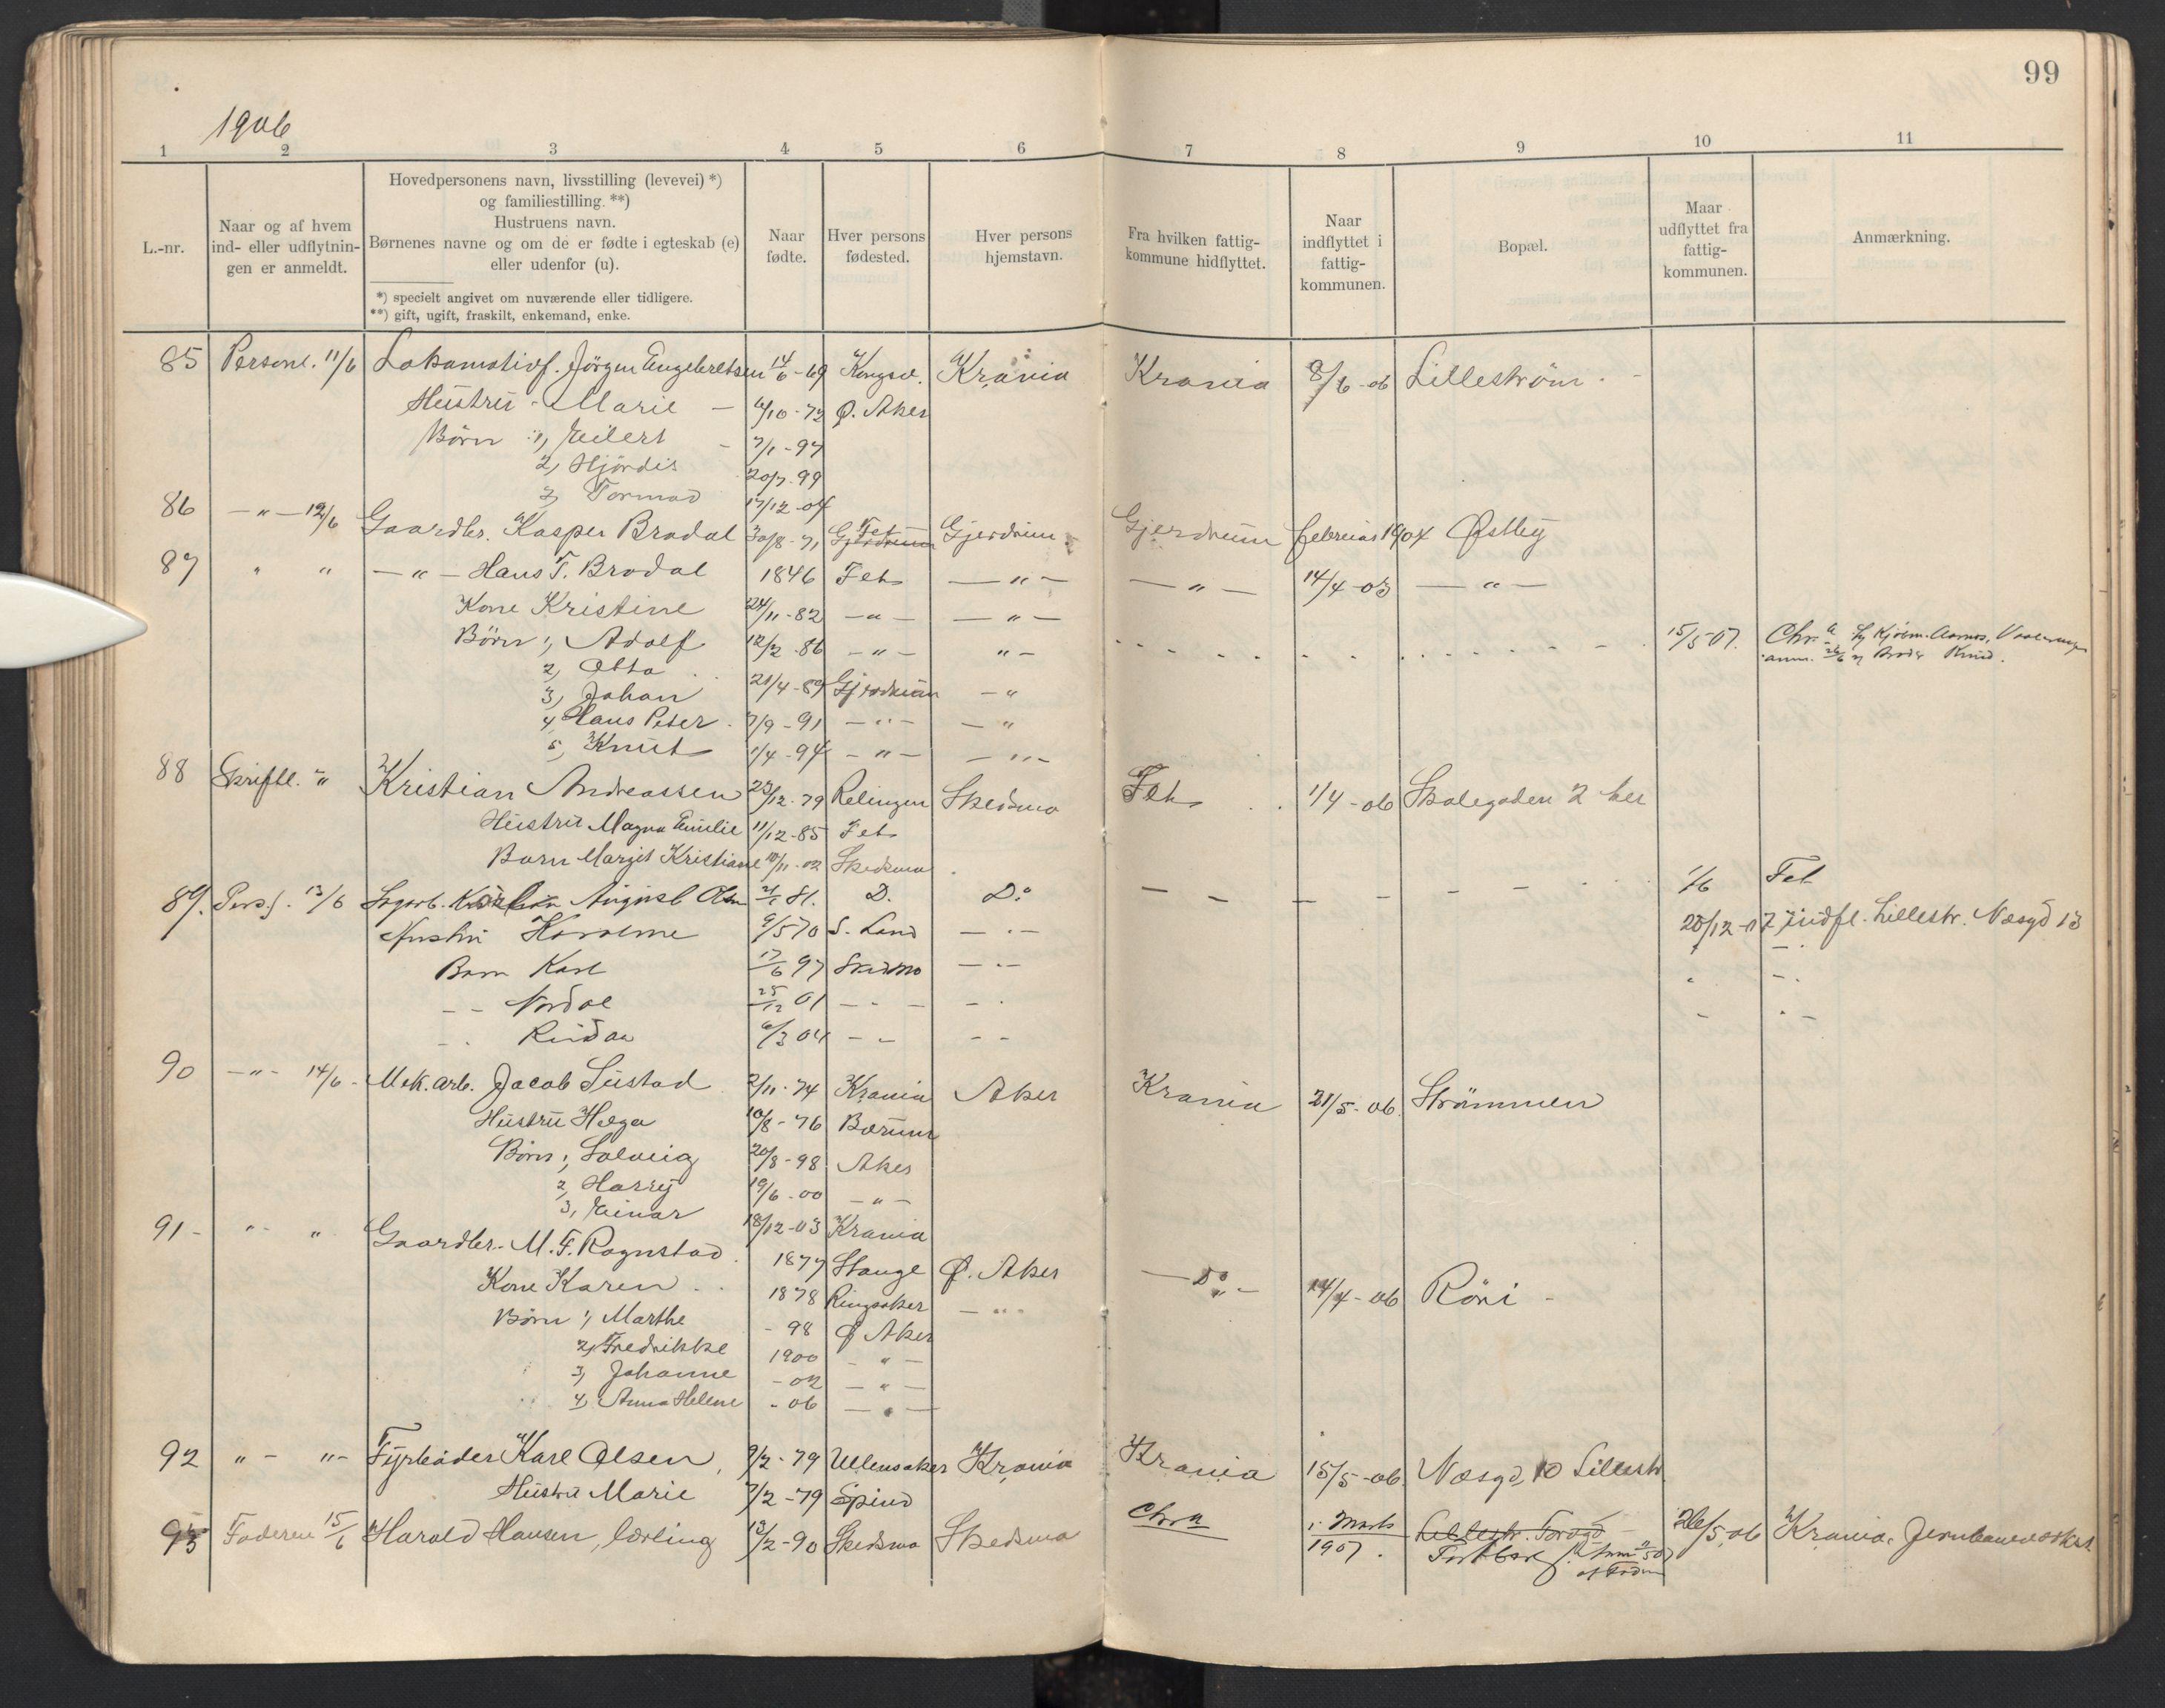 99
1906
1 2 3 4 5 6 7 8 9 10 11
L.-nr.
Naar og af hvem ind- eller udflytnin- gen er anmeldt.
Hovedpersonens navn, livsstilling (levevei) *)
og familiestilling. **)
Hustruens navn.
Børnenes navne og om de er fødte i egteskab (e)
eller udenfor (u).
*) specielt angivet om nuværende eller tidligere.
**) gift, ugift, fraskilt, enkemand, enke.
Naar fødte.
Hver persons fødested.
Hver persons hjemstavn.
Fra hvilken fattig- kommune hidflyttet.
Naar indflyttet i fattig- kommunen.
Bopæl.
Maar udflyttet fra fattig- kommunen.
Anmærkning.
85 Personl. 11/6 Lokomotivf. Jörgen Engebretsen 14/6-69 Kongsv. Krania Krania 8/6-06 Lilleström
Hustru - Marie - 6/10-72 Ø. Aker
Börn 1, Eilert - 7/1-97
2, Hjördis 20/7-99
3, Tormod 17/12-04
86 -"- 12/6 Gaardbr. Kasper Brodal 30/8-71 Gjerdrum Fet Gjerdrum Gjerdrum februar 1904 Østby
87 " " -"- Hans T. Brodal 1846 Fet -"- -"- 14/4-03 -"-
Kone Kristine 24/11-82 -"- -"-
Börn 1, Adolf 12/2-86 -"- "- 15/5-07. Chr.a Kjörem. Aamos, Vaalerengen
2, Otto anm. 26/6 Broder Knud.
3, Johan 21/4-89 Gjerdrum -"
4 Hans Peter 7/9-91 -"- -"
5, Knut 1/4-94 -"- -"-
88 Skriftl. " Kristian Andreassen 23/12-79 Relingen Skedsmo Fet 1/4-06 Skolegaden 2 her
Hustru Magna Emilie 11/12-85 Fet
Barn Margit Kristiane 10/11-02 Skedsmo
89. Pers. 13/6 Sagarb. August Olsen 81. D. Do 1/6 Fet
Hustru 9/5 70 S. Land -"- 28/12-07 Indfl. Lillestr. Næsgd 13
Barn Karl 17/6 97 Skedsmo -"-
-- 25/12 01 - - -
-- 6/3 04 - - - -
90 -"- 14/6 - Mek. arb. Jacob Sustad 2/11-74 Krania Aker Krania 21/5-06. Strömmen
Hustru Helga 10/8-76 Bærum
Börn 1, Solveig 20/8-98 Aker
2, Harry 19/6-00 -"-
3, Einar 18/12-03 Krania
91 - " " Gaardbr. M. F. Rognstad 1877 Stange Ø. Aker -Do- 14/4-06 Röni -
Kone Karen 1878 Ringsaker -"-
Börn 1, Marthe - 98 Ø Aker
2, Fredrikke 1900 -"-
3, Johanne - 02 -"-
4, Anna Helene - 06 -"-
92 "- "- Fyrböder Karl Olsen, 9/2-79 Ullensaker Krania Krania 15/5-06. Næsgd, 10 Lillestr.
Hustru Marie 7/2-79 Spind
93 Faderen 15/6 Harald Hansen, lærling 13/2-90 Skedsmo Skedsmo Chr.a 1. Marts 1907. Lillestr. Torvgd 26/5 06 Krania, Jernbaneverkst.